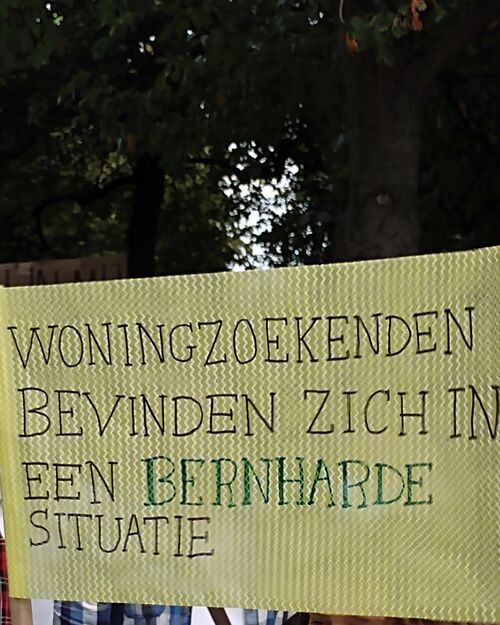 WONINGZOEKENDEN
BEVINDEN ZICH IN
EEN BERNHARDE
SITUATIE